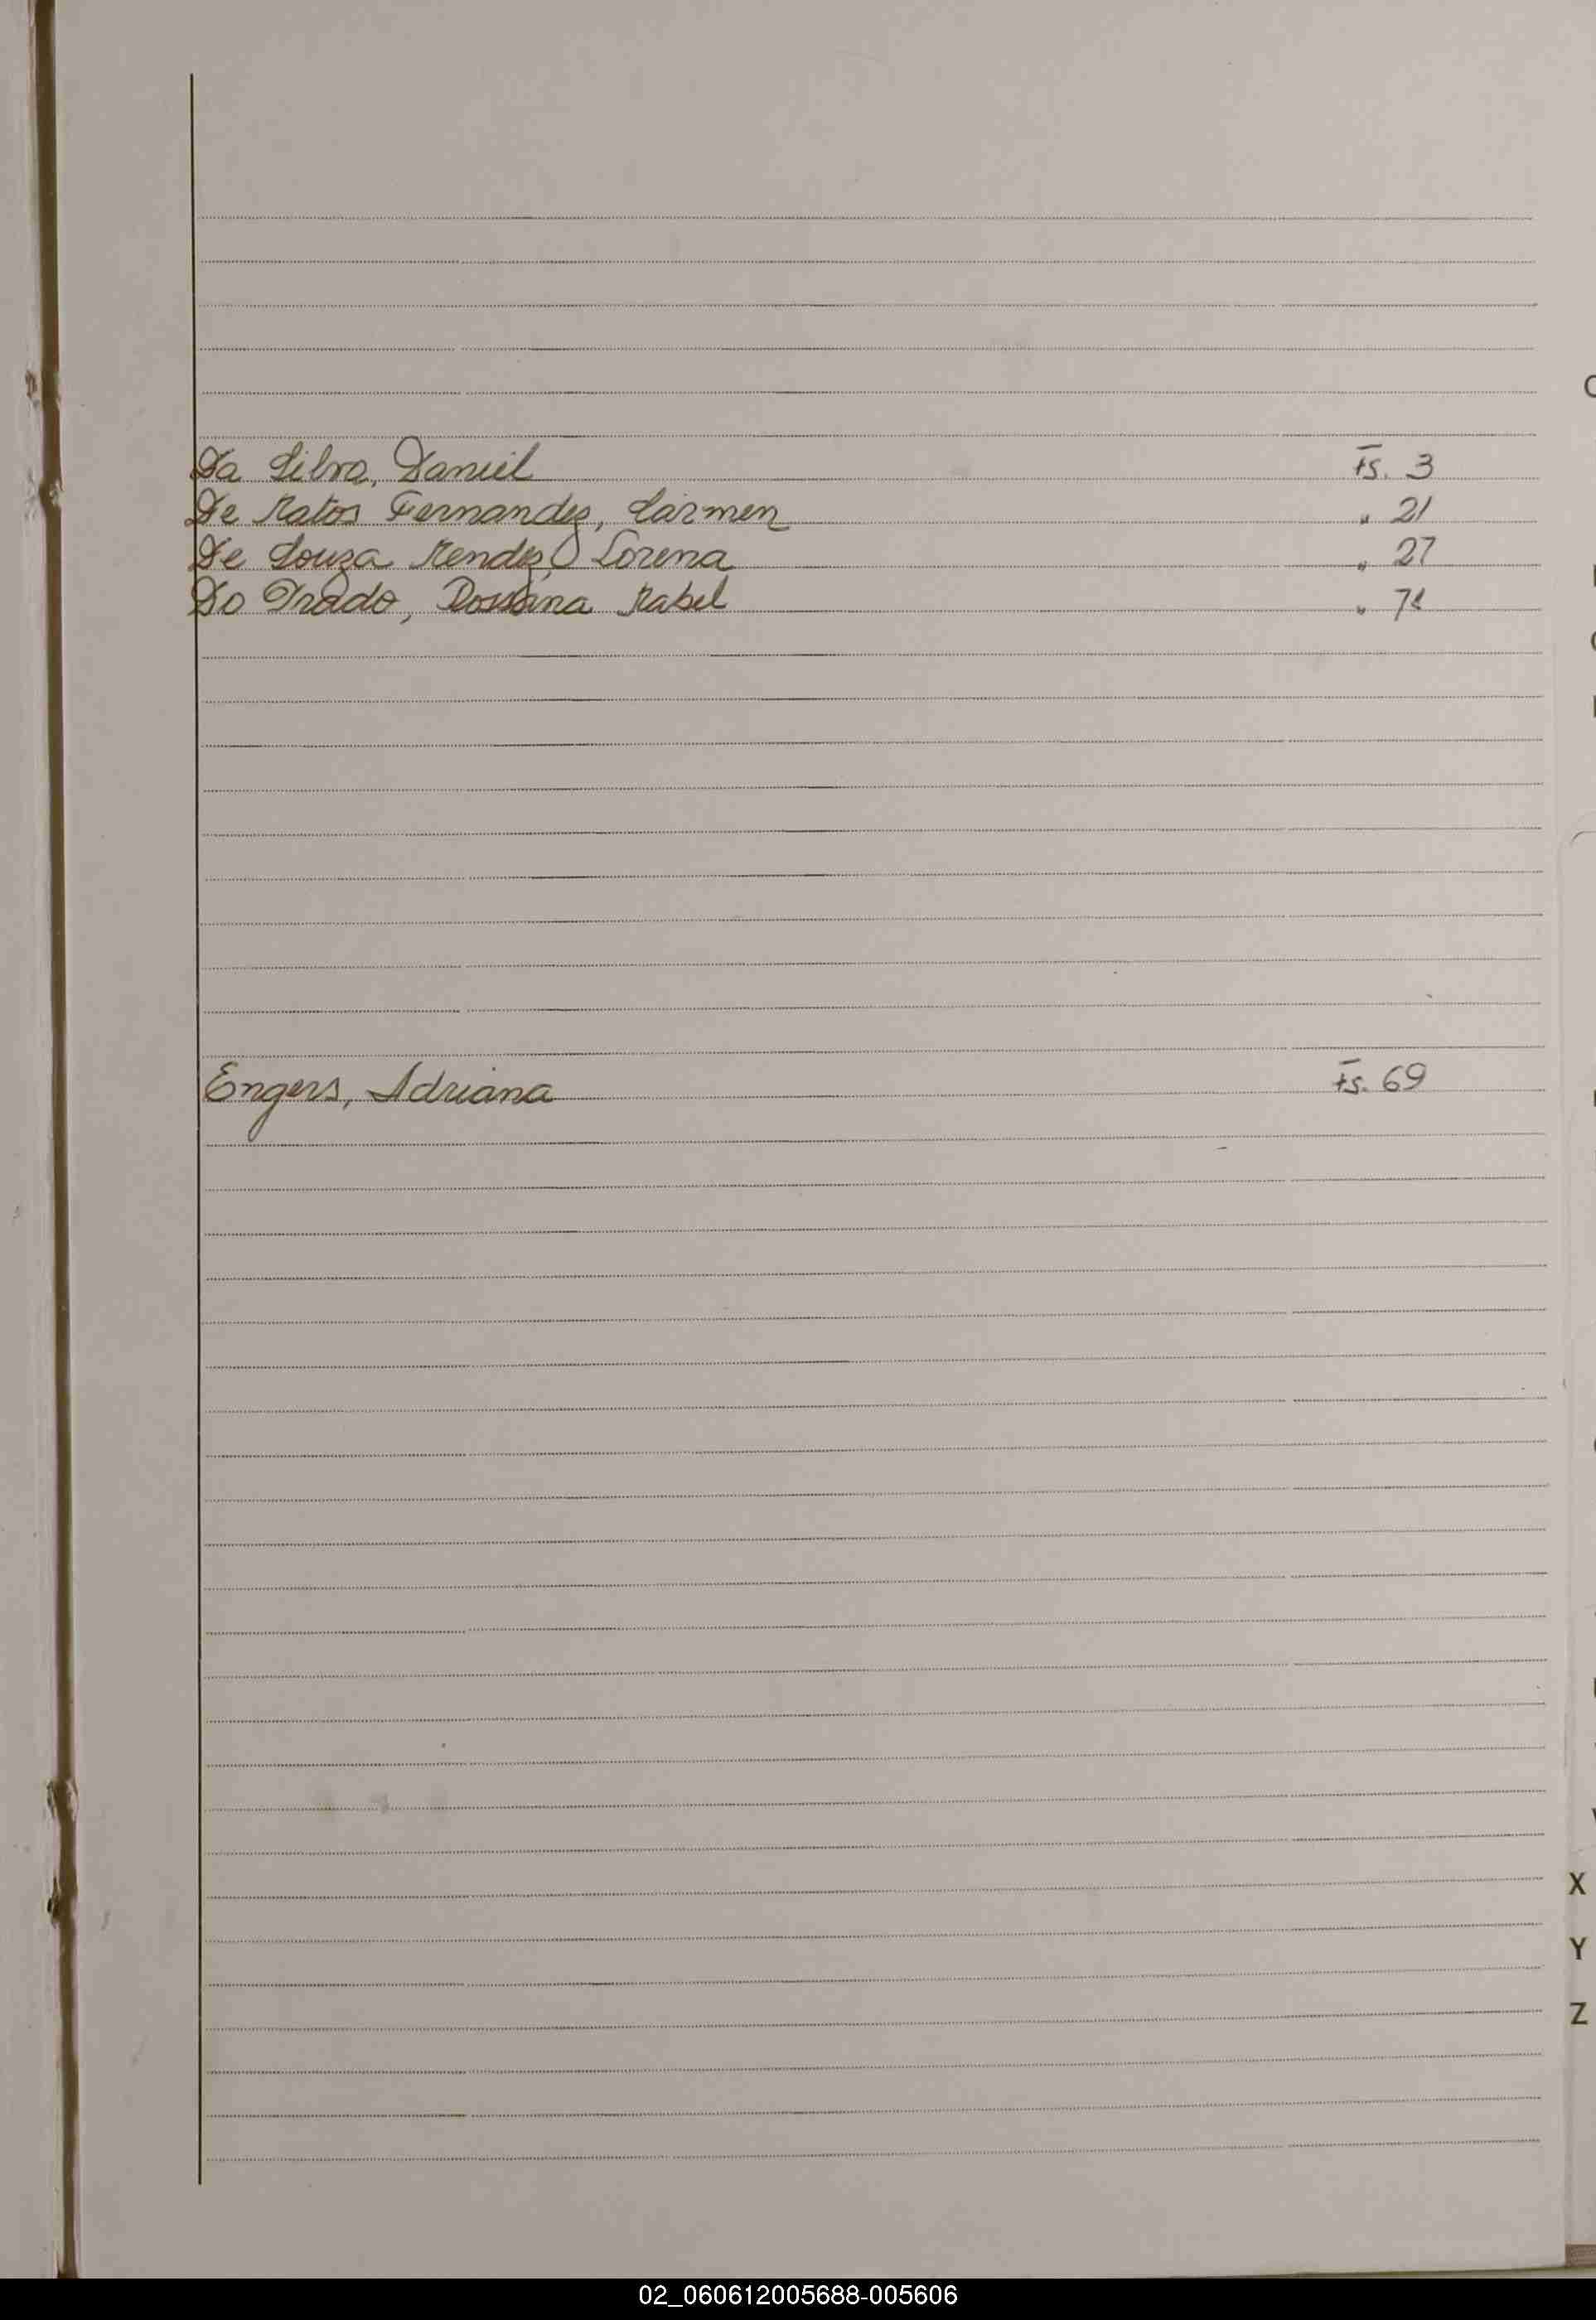 Da Silva, Daniel Fs. 3
De Matos Fernandez, Carmen " 21
De Souza Mendez, Lorena " 27
Do Prado, Rossana Mabel "
Engers, Adriana Fs. 69
X
Y
Z
02_060612005688-005606